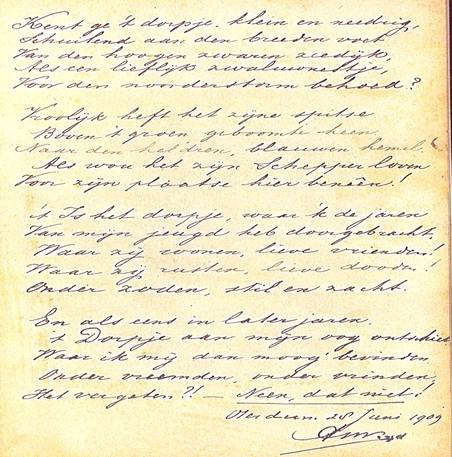 Kent ge 't dorpje, klein en needrig,
Schuilend aan den breeden voet
Van den hoogen zwaren zeedijk,
Als een lieflijk zwaluwnestje,
Voor den noorderstorm behoed?
Vroolijk heft het zijne spitse
Boven 't groen geboomte heen
Naar den heldren, blauwen hemel,
Als wou het zijn Schepper loven
Voor zijn plaatse hier beneên!
't Is het dorpje, waar 'k de jaren
Van mijn jeugd heb doorgebracht,
Waar zij wonen, lieve vrienden!
Waar zij rusten, lieve dooden!
Onder zoden, stil en zacht.
En als eens in later jaren,
't Dorpje aan mijn oog ontschiet
Waar ik mij dan moog' bevinden,
Onder vreemden, onder vrinden,
Het vergeten?! — Neen, dat niet!
28 Juni 1909